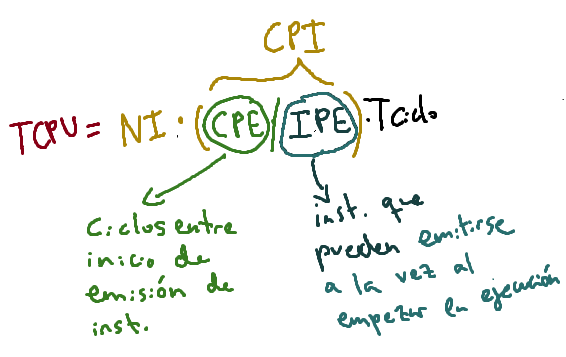 CPI
TCPU = NI · (CPE / IPE) · Tciclo
Ciclos entre
inicio de
emisión de
inst.
inst. que
pueden emitirse
a la vez al
empezar la ejecución